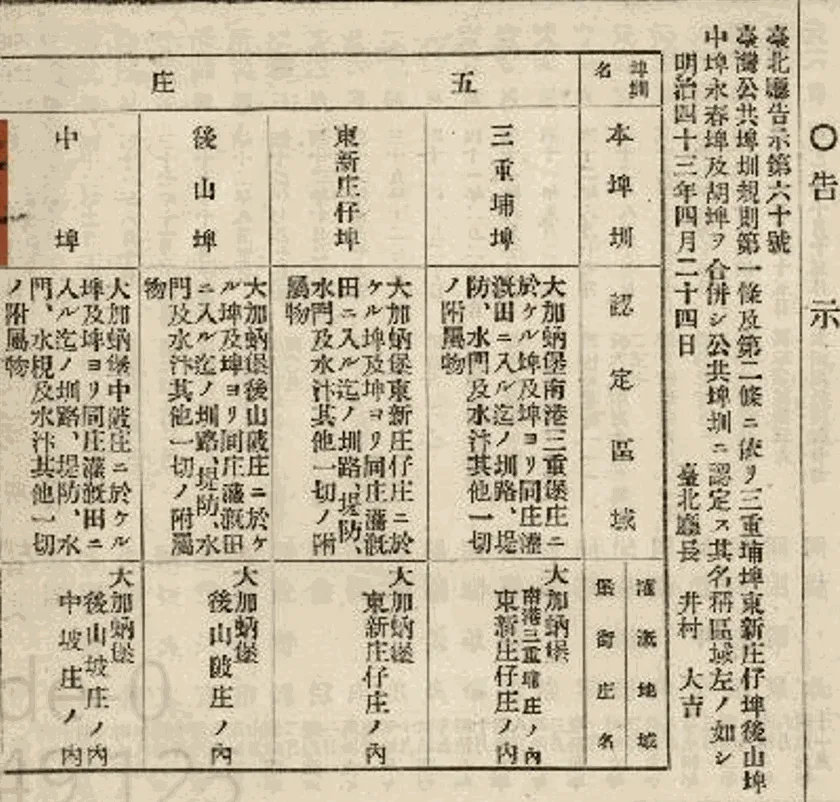 ○告示
臺北廳告示第六十號
臺灣公共埤圳規則第一條及第二條ニ依リ三重埔埤東新庄仔埤後山埤
中埤永春埤及胡埤ヲ合併シ公共埤圳ニ認定ス其名稱區域左ノ如シ
明治四十三年四月二十四日
臺北廳長 井村 大吉
埤圳
名
五庄
本埤圳
認定區域
灌漑地域
堡街庄名
三重埔埤
大加蚋堡南港三重堡庄ニ
於ケル埤及埤ヨリ同庄灌
漑田ニ入ル迄ノ圳路、堤
防、水門及水汴其他一切
ノ附屬物
大加蚋堡
南港三重埔庄ノ內
東新庄仔庄ノ內
東新庄仔埤
大加蚋堡東新庄仔庄ニ於
ケル埤及埤ヨリ同庄灌漑
田ニ入ル迄ノ圳路、堤防、
水門及水汴其他一切ノ附
屬物
大加蚋堡
東新庄仔庄ノ內
後山埤
大加蚋堡後山陂庄ニ於ケ
ル埤及埤ヨリ同庄灌漑田
ニ入ル迄ノ圳路、堤防、水
門及水汴其他一切ノ附屬
物
大加蚋堡
後山陂庄ノ內
中埤
大加蚋堡中陂庄ニ於ケル
埤及埤ヨリ同庄灌漑田ニ
入ル迄ノ圳路、堤防、水
門、水梘及水汴其他一切
ノ附屬物
大加蚋堡
後山坡庄ノ內
中坡庄ノ內